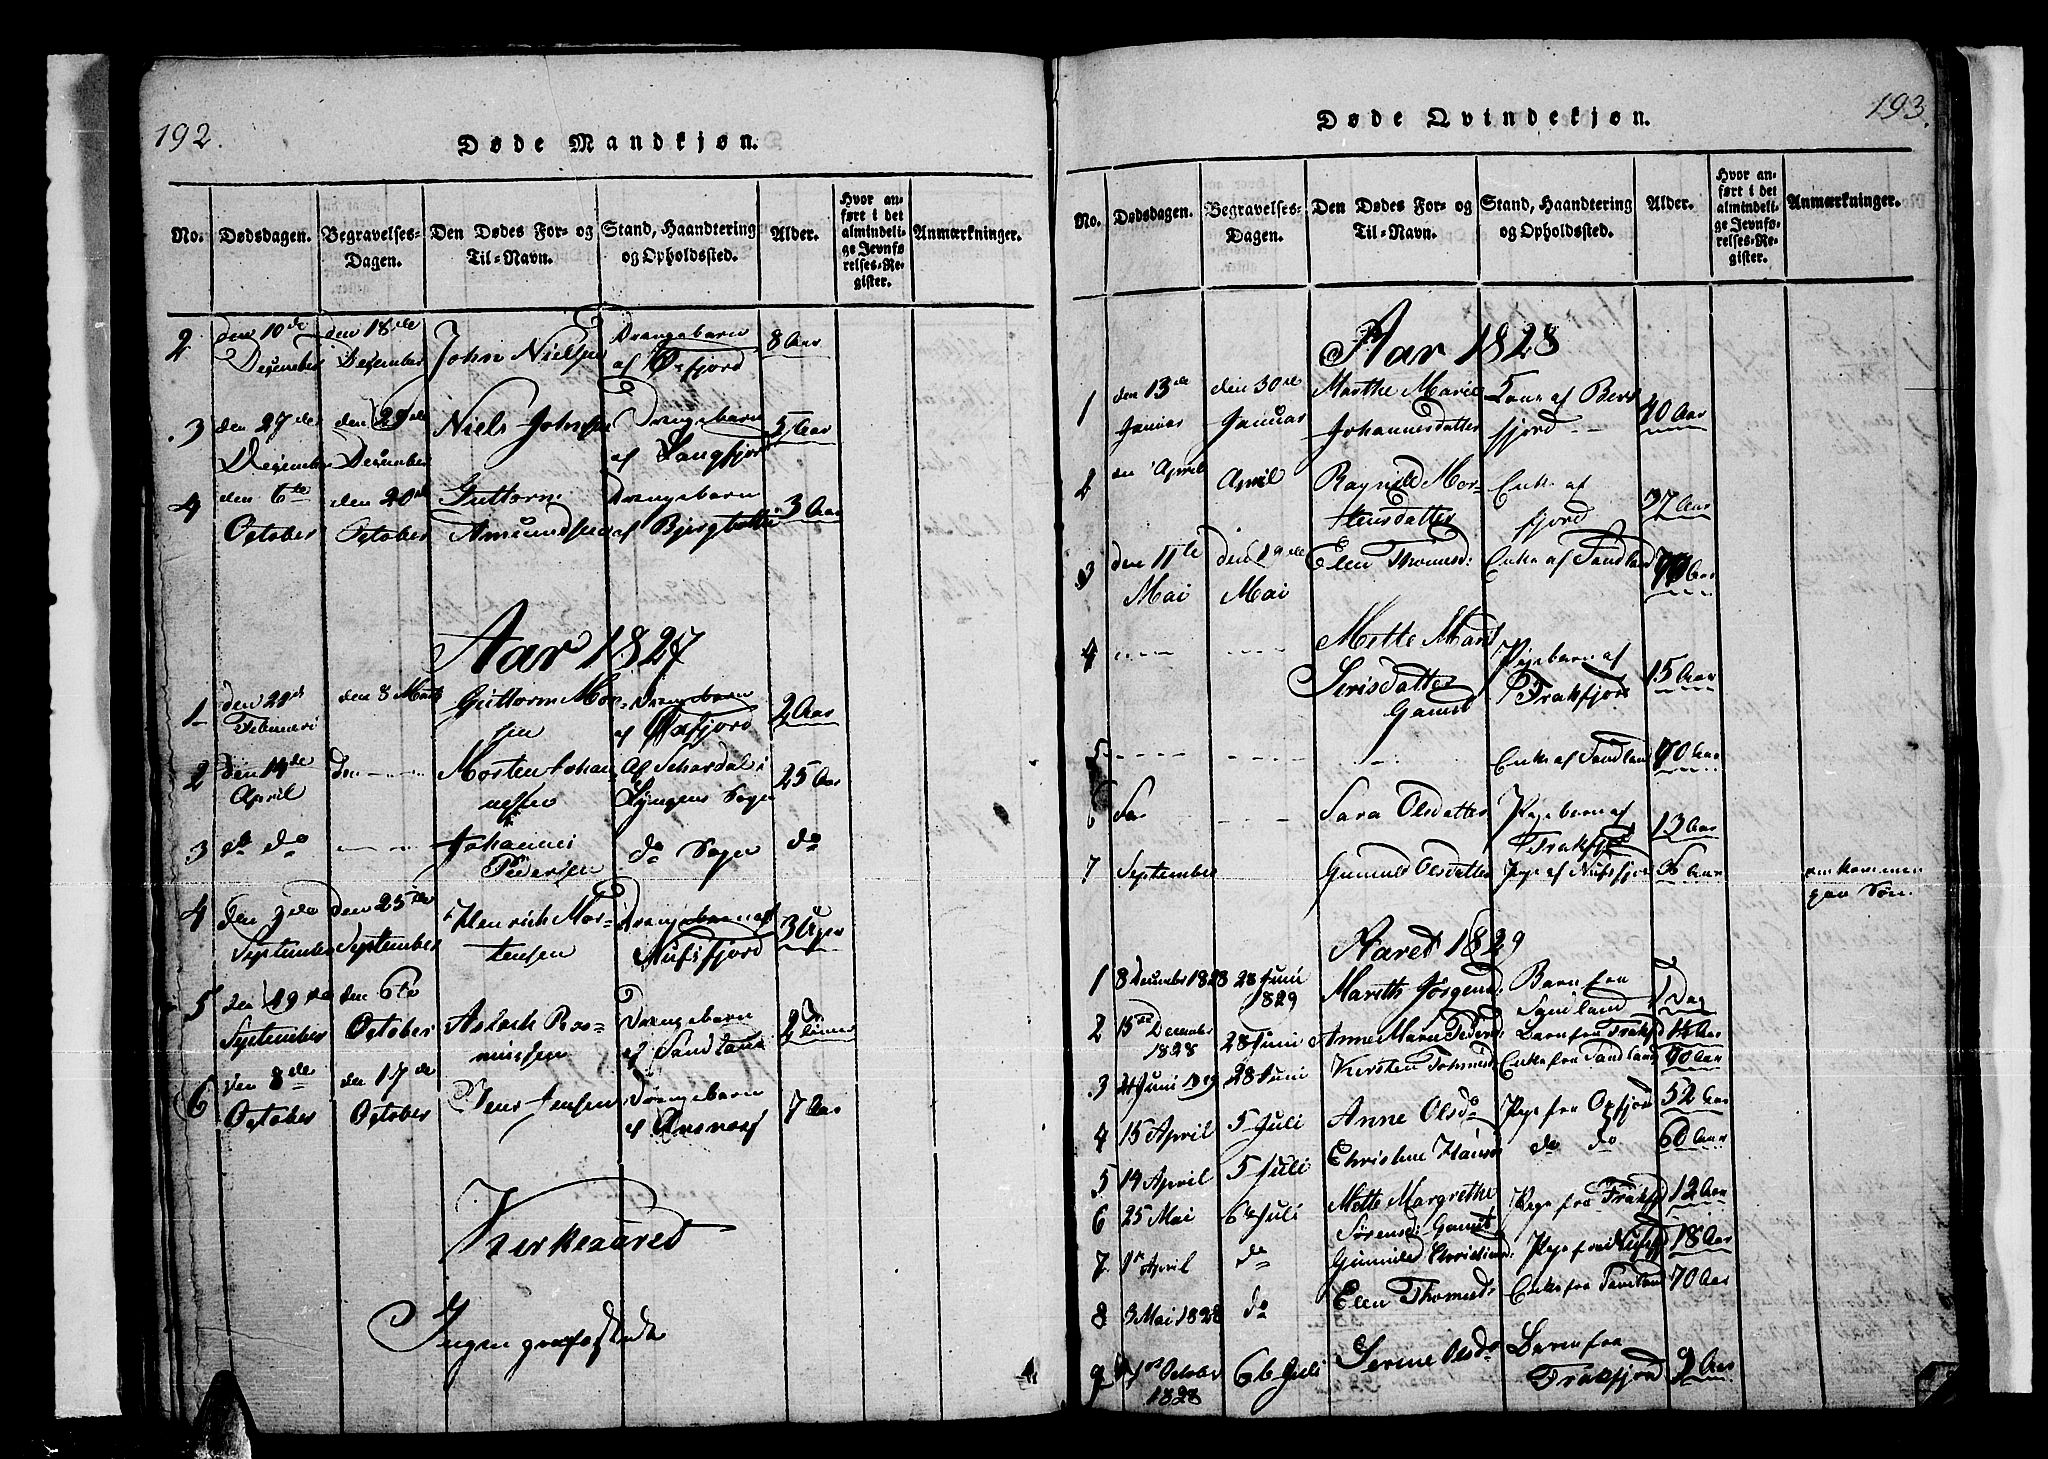 192.
Døde Mandkjøn.
No. Dødsdagen. Begravelses-Dagen. Den Dødes For- og Til-Navn. Stand, Haandtering og Opholdssted. Alder. Hvor anført i det almindelige Jevnførelses-Register. Anmærkninger.
2 den 10de December den 18de December John Nielsen Drengebarn af Oxfjord 8 Aar
3 den 27de December den 29de December Niels Johnsen Drengebarn af Langfjord 5 Aar
4 den 6te October den 20de October Guttorm Amundsen Drengebarn af 3 Aar
Aar 1827
1 den Februari den 8 Marts Guttorm Drengebarn af Oxfjord 2 Aar
2 den 14de April den - - - Morten Johannessen Af i Lyngens Sogn 25 Aar
3 do do - - - Johannes Pedersen do Sogn do
4 den September den 25de September Henrich Mortensen Drengebarn af Nufsfjord 3 Uger
5 den 29de September den 6te October Aslach Rasmussen Drengebarn af Sandland 2 Timer
6 den 8de October den 17de October Jens Jensen Drengebarn af 7 Aar
Kirkeaaret
Ingen
193.
Døde Qvindekjøn.
No. Dødsdagen. Begravelses-Dagen. Den Dødes For- og Til-Navn. Stand, Haandtering og Opholdssted. Alder. Hvor anført i det almindelige Jevnførelses-Register. Anmærkninger.
Aar 1828
1 den 13de Januar den 30te Januar Marthe Marie Johannesdatter Kone af fjord - - 40 Aar
2 den April April Ragnild Mortensdatter Enke af fjord 37 Aar
3 den 11te Mai den 19de Mai Elen Thomesd: Enke af Sandland Aar
4 - - - - - - - Mette Marit Serisdatter Gamst Pigebarn af Frakfjord 15 Aar
5 - - - - - - - - - Enke af Sandland 70 Aar
6 Sa - - - Sara Olsdatter Pigebarn af Frakfjord 13 Aar
7 September Gunnild Olsdatter Pige af Nufsfjord 36 Aar omkommen paa Søn
Aaret 1829
1 8 December 1828 28 Juni 1829 Mareth Jørgensd: Barn fra 1 Dag
2 15de December 1828 28 Juni Anne Marie Pedersd: Barn fra Frakfjd Aar
3 Juni 1829 28 Juni Kirsten Tohmesd Enke fra Sandland 70 Aar
4 15 April 5 Juli Anne Olsdr Pige fra Oxfjord 52 Aar
5 19 April 5 Juli Christine Hansd do do 60 Aar
6 25 Mai 6te Juli Mette Margrethe Sørensd: Gamst Pige fra Frakfjd 12 Aar
7 April do Gunnild Christiansd: Pige fra Nufsfjd 18 Aar
8 9 Mai 1828 do Elen Thomesdr Enke fra Sandland 70 Aar
9 October 1828 6te Juli Serine Olsdr Barn fra Frakfjord 2 Aar